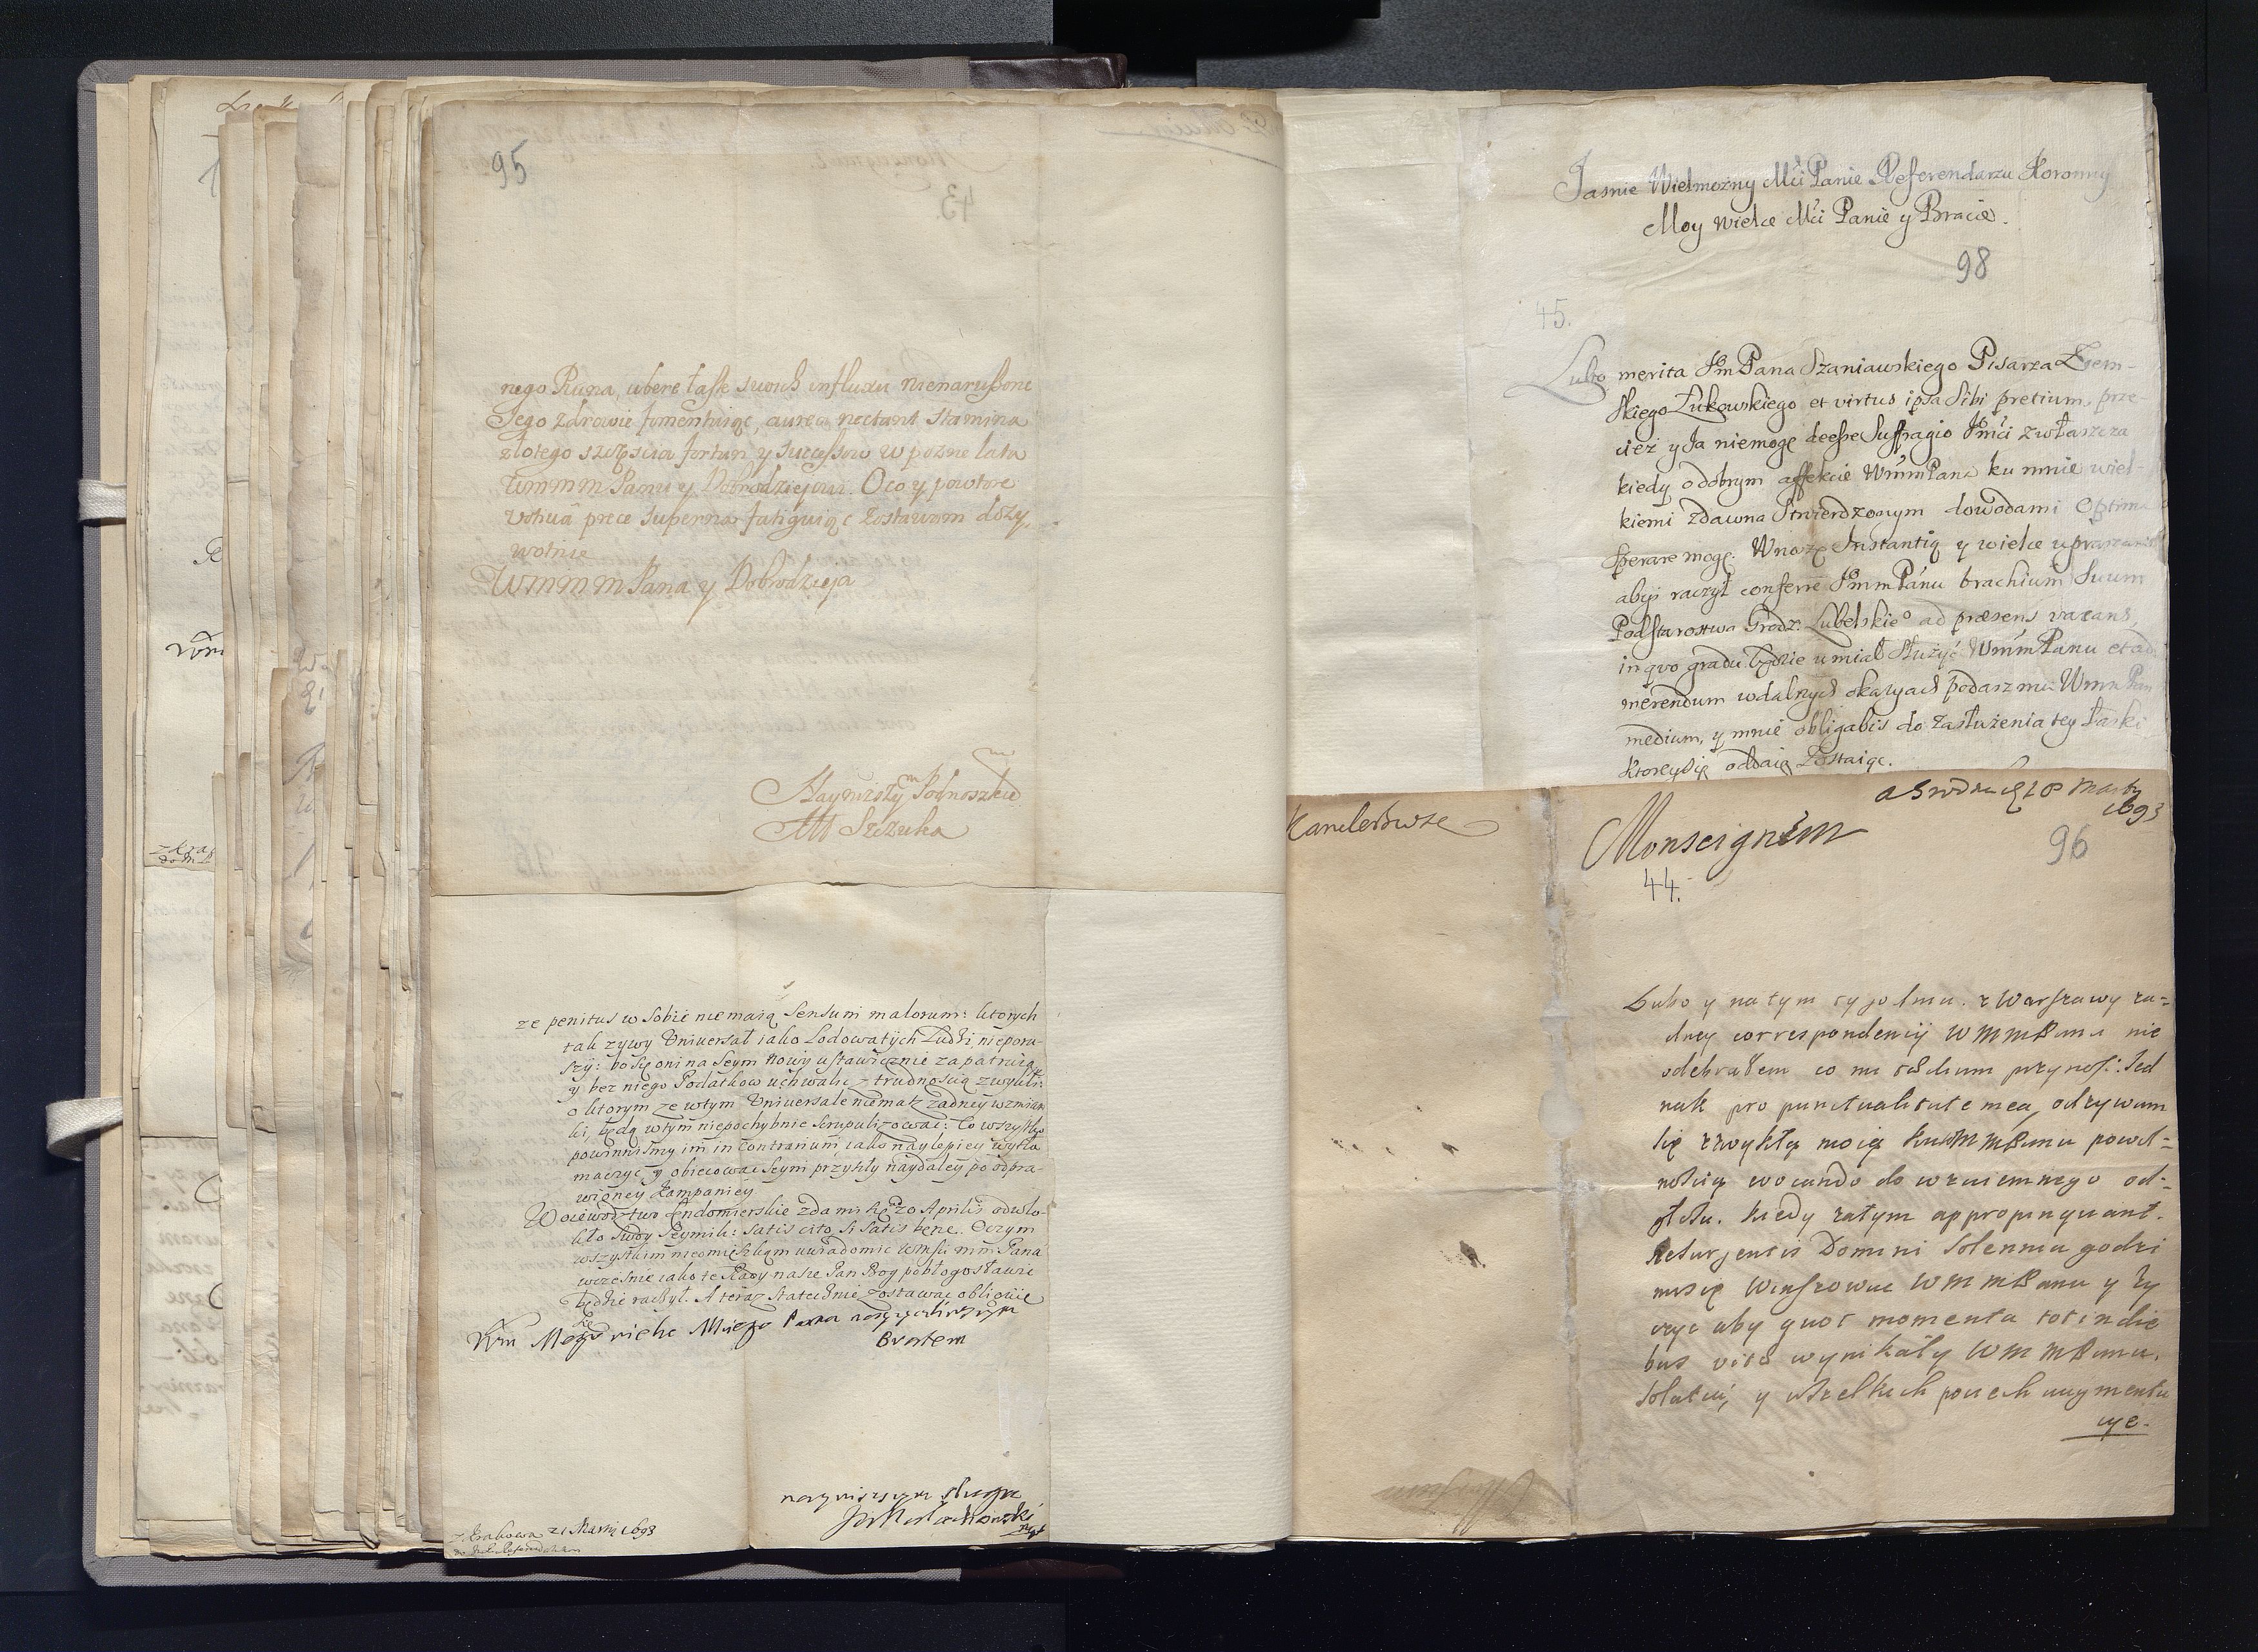 95
nego Runa, ubere łask swoich influxu nienarussone
Jego zdrowie fomentuiąc, aurea nectant stamina
złotego szczęścia fortun y successow w pozne lata
Wmmm Panu y Dobrodzieyowi. O co y powtore
prece superna fatiguiąc zostawam doży
wotnie
Wmmm Pana y Dobrodzieja
Nayniższym Podnoszkiē
Szczuka
ze penitus w sobie nie maią sensum malorum: ktorych
tak zywy Uniwersał iako Lodowatych Ludzi nieporu-
szy: bo się oni na Seym nowy ustawicznie zapatruią
y bez niego Podatkow uchwalic z trudnoscią zwykli:
o ktorym ze w tym Uniwersale niemasz zadney wzmian
ki, będą w tym niepochybnie skrupulizowac: Co wszystko
powinnismy im in contrarium, iako naylepiey wytła
maczyc, y obiecowac Seym przyszły naydaley po odpra-
wioney Kampaniey
Woiewodztwo Sendomierskie zda mi się 20 Aprilis odwło-
kło swoy Seymik: satis cito, si satis bene. O czym
wszystkim nieomieszkam uwiadomic Wmsci mm Pana
wczesnie iako te Rady nasze Pan Bog pobłogosławic
będzie raczył. A teraz statecznie zostawac obliguię
się
Wm Mego wielce Mscego Pana nayzyczliwszym
Bratem
nayniższym sługą
z Krakowa 21 Marty 1693
Jasnie Wielmożny Mći Panie Referendarzu Koronny
Moy wielce Mći Panie y Bracie.
98
45.
Lubo merita Jm Pana Szaniawskiego Pisarza Ziem-
skiego Łukowskiego et virtus ipsa sibi pretium, prze
cież y Ja niemogę deesse suffragio Jmći zwłaszcza
kiedy o dobrym affekcie WmmPana ku mnie wiel-
kiemi zdawna stwierdzonym dowodami Optima
sperare mogę. Wnoszę Instantią y wielce upraszam
abyś raczył conferre JmmPanu brachium suum
Podstarostwa Grodz: Lubelskie° ad præsens vacans,
in qvo gradu będzie umiał służyć WmmPanu et ad
merendum w dalnych okazyach podasz mu Wmm Pan
medium, y mnie obligabis do zasłużenia tey Łaski
ktorey się oddaię zostaiąc.
Kanclerowze
10 Marty
1693
Monseigneur
96
44.
Lubo y na tym tygodniu z Warszawy ża-
dney correspondencij WMMPana nie
odebrałem co mi tædium przynosi: Jed
nak pro punctualitate mea, odzywam
się zwykłą moią ku WMMPanu powol-
nością vocando do wzaiemnego od-
głosu. Kiedy zatym appropinquant
Resurgentis Domini Solennia godzi
mi się winszować WMMPanu y ży
czyc aby quot momenta tot in die
bus vitæ wynikały WMMPanu
solatij, y wszelkich pociech augmenta
cye.